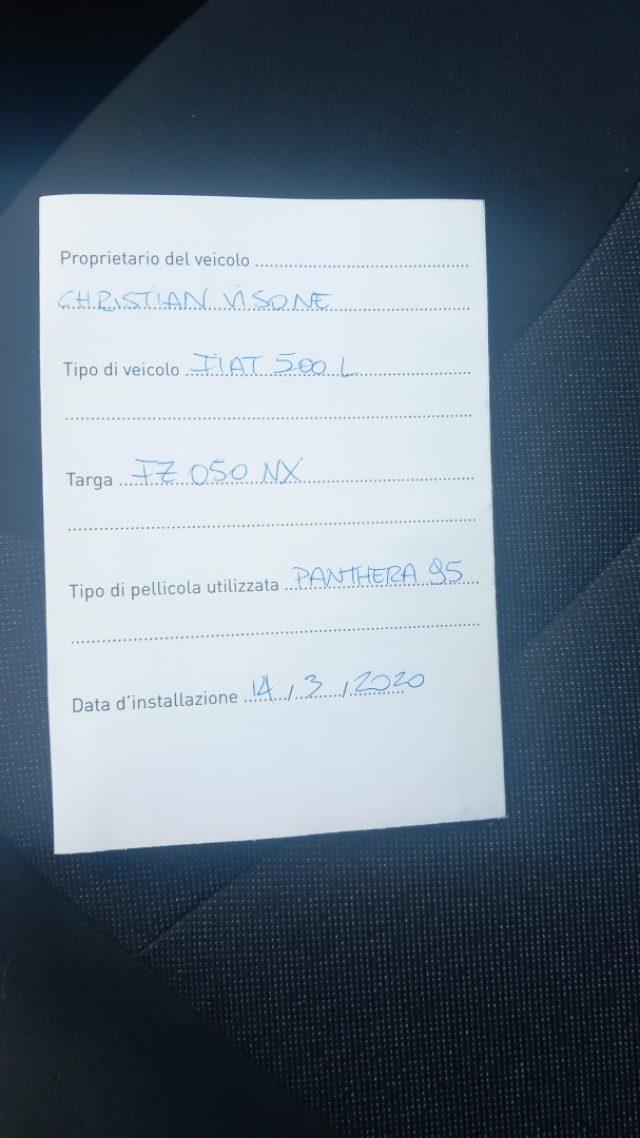 Proprietario del veicolo
CHRISTIAN VISONE
Tipo di veicolo FIAT 500 L
Targa FZ 050 NX
Tipo di pellicola utilizzata PANTHERA 95
Data d'installazione 14 / 3 / 2020